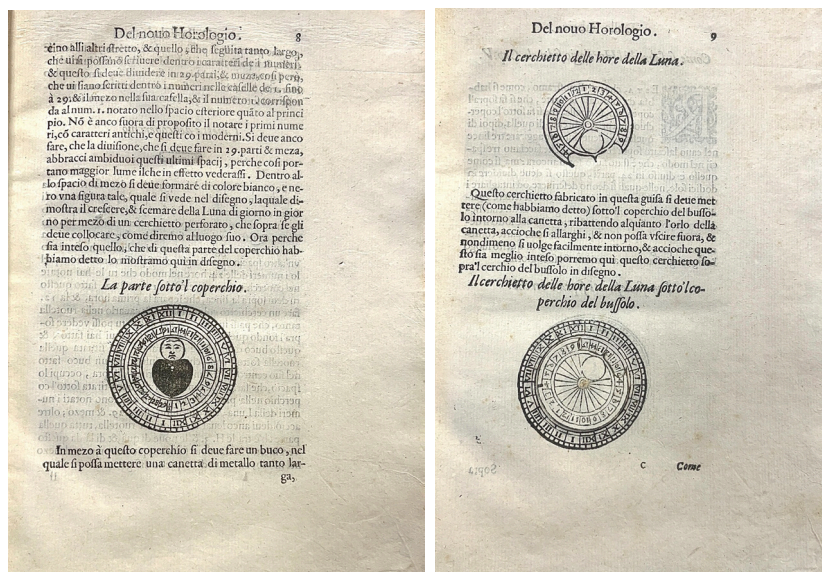 Del nouo Horologio. 8
cino alli altri stretto, & quello, che seguita tanto largo,
che ui si possano scriuere dentro i caratteri de i numeri,
& questo si deue diuidere in 29. parti, & meza, cosi però,
che ui siano scritti dentro i numeri nelle caselle de 1. sino
à 29: & il mezo nella sua casella, & il numero 1. corrispon
da al num. 1. notato nello spacio esteriore quāto al princi
pio. Nō è anco fuora di proposito il notare i primi nume
ri, cō caratteri antichi, e questi co i moderni. Si deue anco
fare, che la diuisione, che si deue fare in 29. parti & meza,
abbracci ambiduoi questi ultimi spacij, perche cosi por-
tano maggior lume ilche in effetto vederassi. Dentro al-
lo spacio di mezo si deue formare di colore bianco, e ne-
ro vna figura tale, quale si vede nel disegno, laquale di-
mostra il crescere, & scemare della Luna di giorno in gior
no per mezo di un cerchietto perforato, che sopra se gli
deue collocare, come diremo al luogo suo. Ora perche
sia inteso quello, che di questa parte del coperchio hab-
biamo detto lo mostramo quì in disegno.
La parte sotto'l coperchio.
In mezo à questo coperchio si deue fare un buco, nel
quale si possa mettere una canetta di metallo tanto lar-
ga,
Del nouo Horologio. 9
Il cerchietto delle hore della Luna.
Questo cerchietto fabricato in questa guisa si deue met
tere (come habbiamo detto) sotto'l coperchio del busso-
lo intorno alla canetta, ribattendo alquanto l'orlo della
canetta, accioche si allarghi, & non possa vscire fuora, &
nondimeno si uolge facilmente intorno, & accioche que-
sto sia meglio inteso porremo quì questo cerchietto so-
pra'l cerchio del bussolo in disegno.
Il cerchietto delle hore della Luna sotto'l co-
perchio del bussolo.
C Come